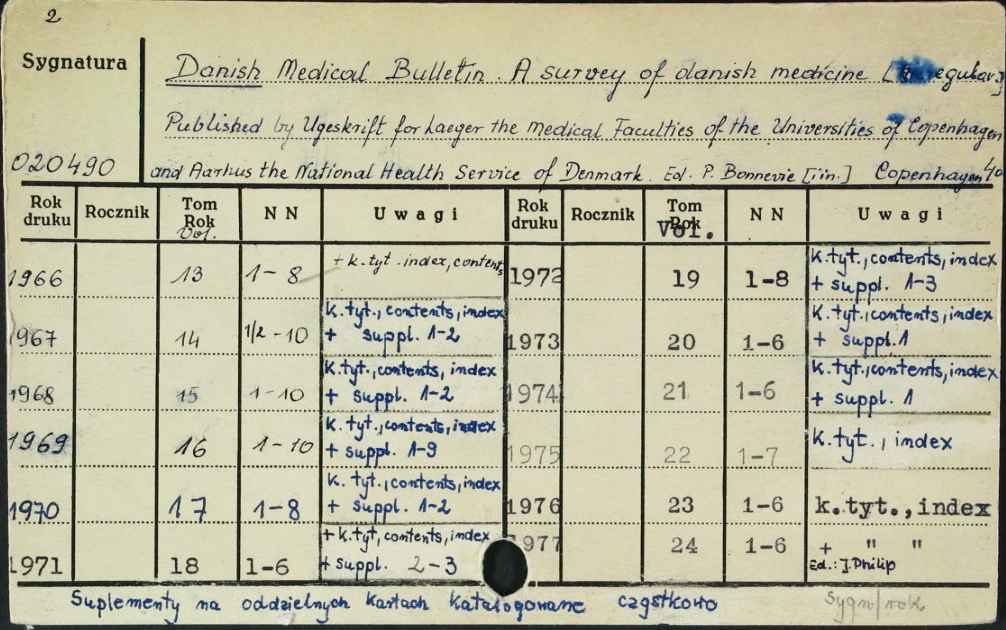 2
Sygnatura
Danish Medical Bulletin. A survey of danish medicine
Published by Ugeskrift for Laeger the Medical Faculties of the Universities of Copenhagen
020490 and Aarhus the National Health Service of Denmark. Ed. P. Bonnevie [i in.] Copenhagen 4o
Rok druku Rocznik Tom Rok Vol. NN Uwagi Rok druku Rocznik Tom Rok Vol. NN Uwagi
1966 13 1-8 + k.tyt. index, contents 1972 19 1-8 k.tyt., contents, index + suppl. 1-3
1967 14 1/2-10 k.tyt., contents, index + suppl. 1-2 1973 20 1-6 k.tyt., contents, index + suppl. 1
1968 15 1-10 k.tyt., contents, index + suppl. 1-2 1974 21 1-6 k.tyt., contents, index + suppl. 1
1969 16 1-10 k.tyt., contents, index + suppl. 1-9 1975 22 1-7 k.tyt., index
1970 17 1-8 k.tyt., contents, index + suppl. 1-2 1976 23 1-6 k.tyt., index
1971 18 1-6 + k.tyt, contents, index + suppl. 2-3 1977 24 1-6 + " " Ed.: J. Philip
Suplementy na oddzielnych kartach katalogowane cząstkowo Sygn/rok